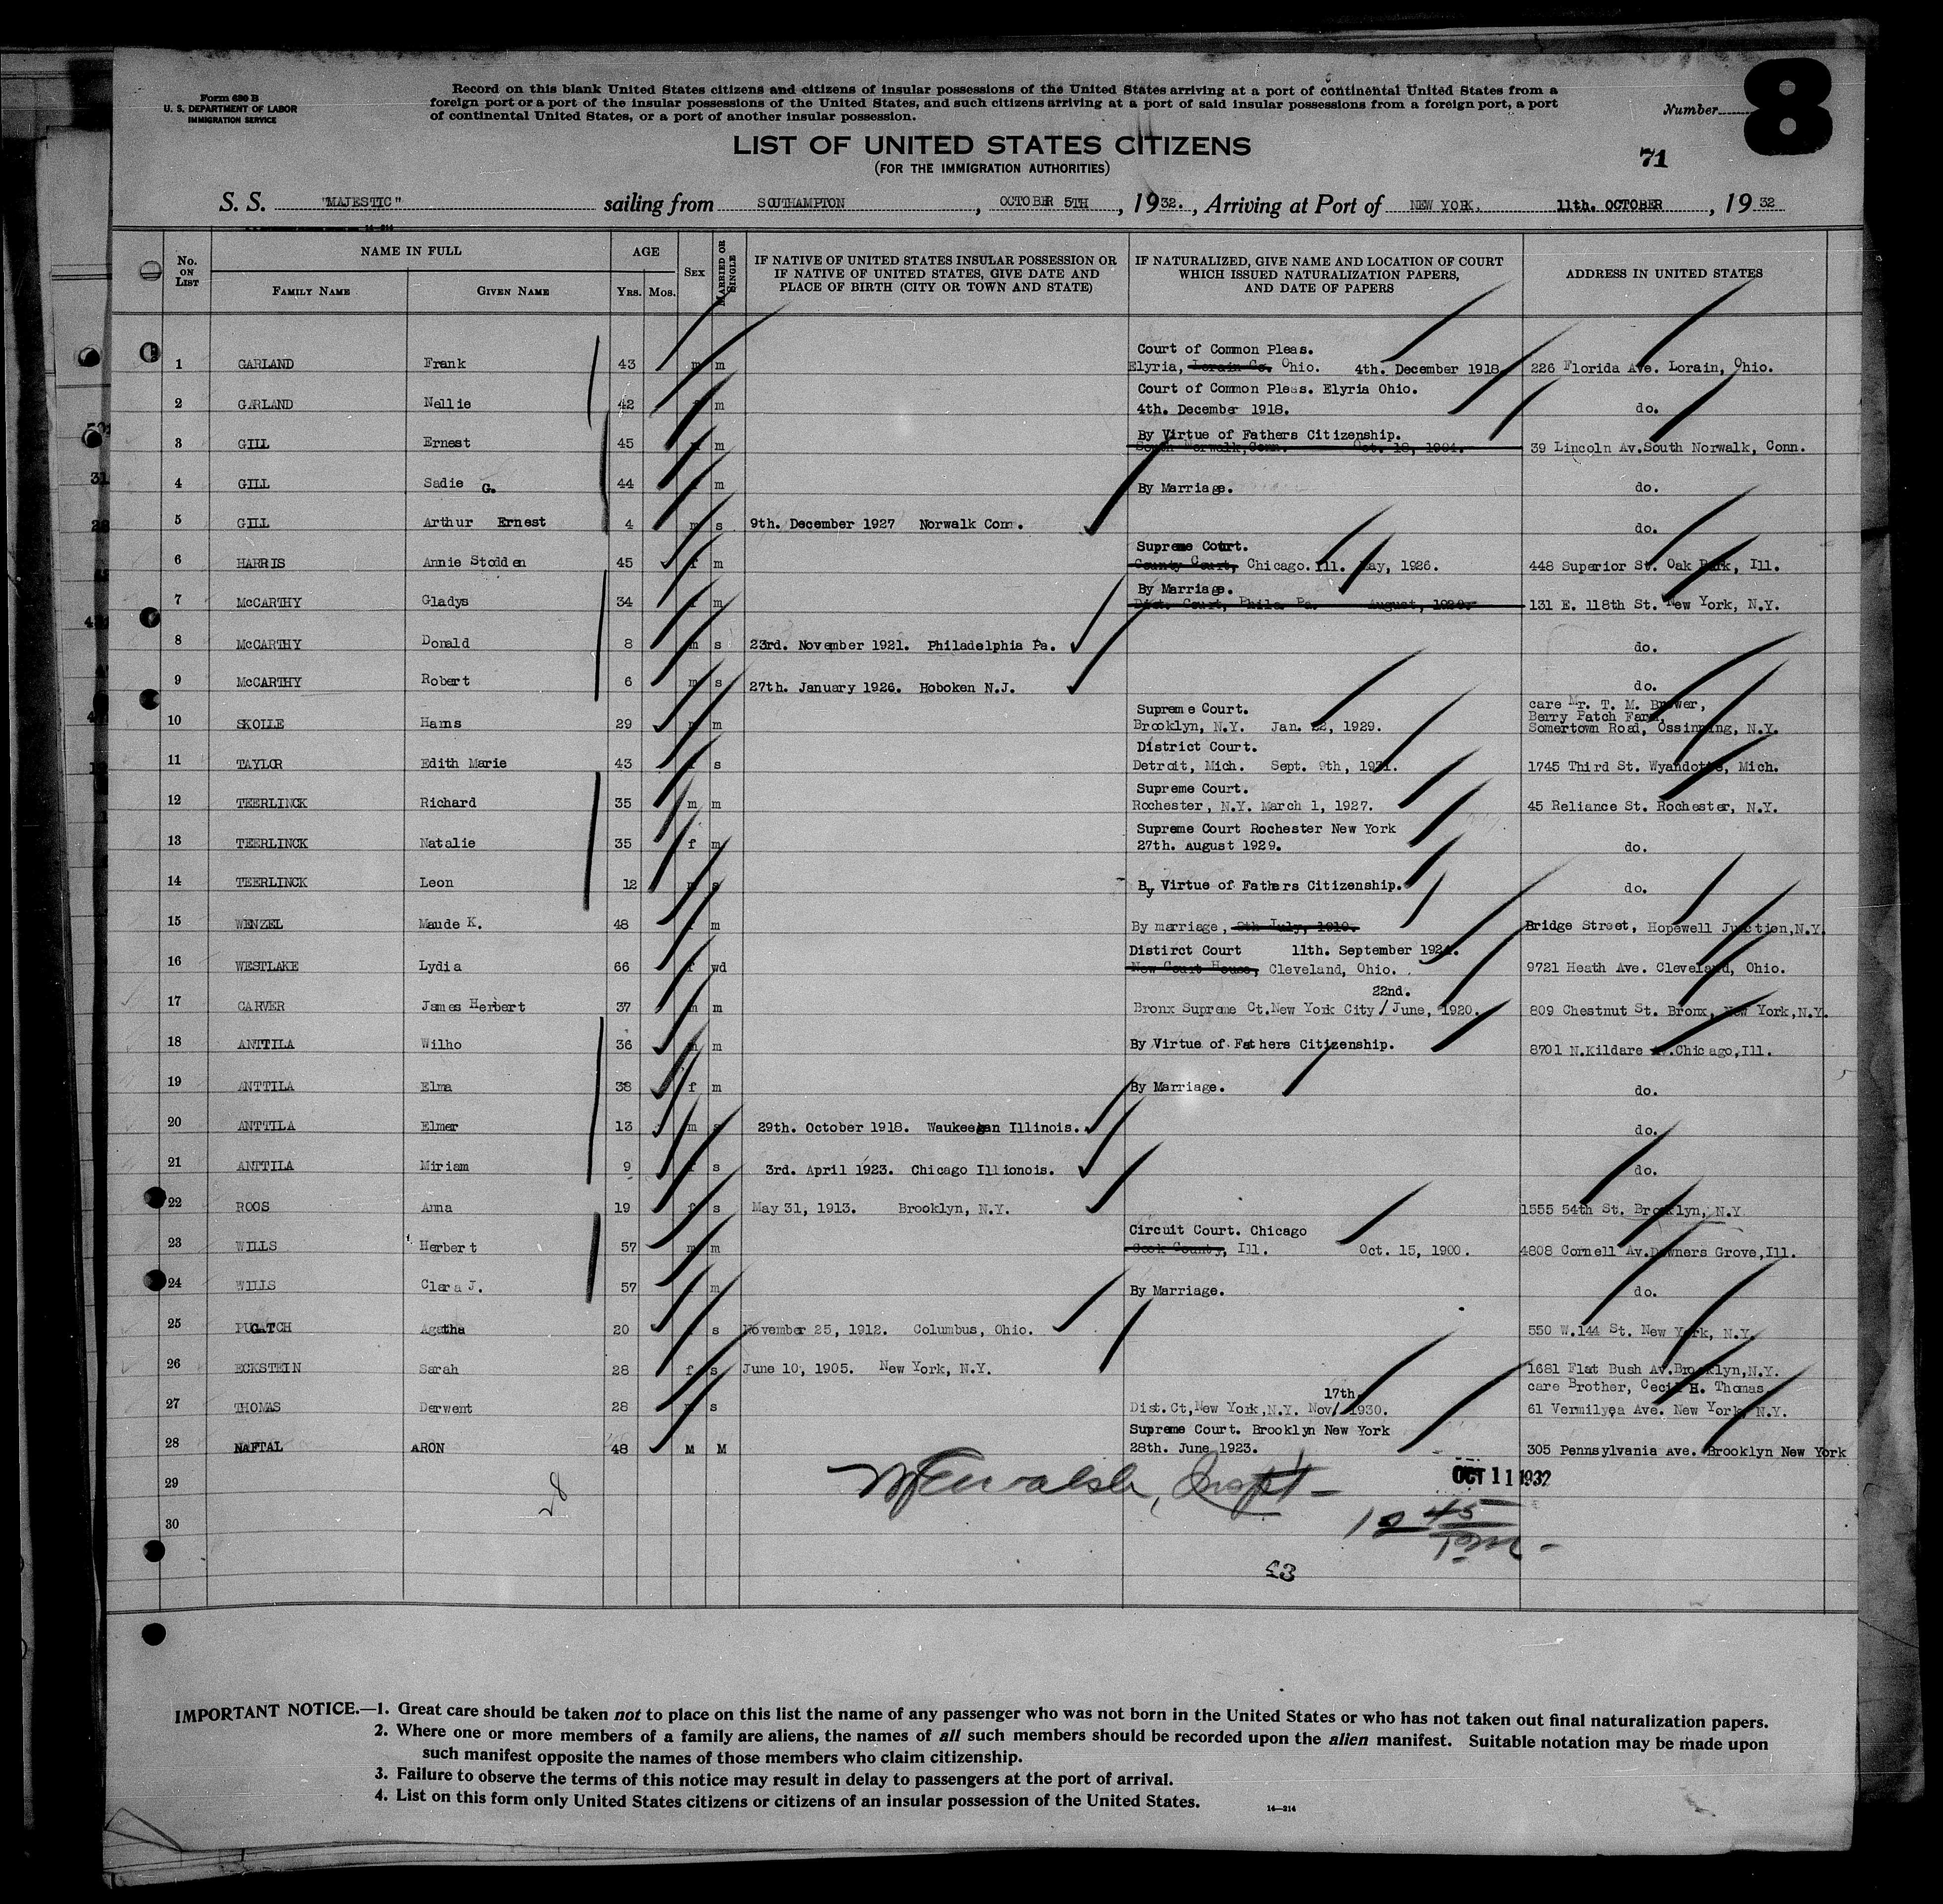 Form 630 B
U. S. DEPARTMENT OF LABOR
IMMIGRATION SERVICE
Record on this blank United States citizens and citizens of insular possessions of the United States arriving at a port of continental United States from a
foreign port or a port of the insular possessions of the United States, and such citizens arriving at a port of said insular possessions from a foreign port, a port
of continental United States, or a port of another insular possession.
Number 8
LIST OF UNITED STATES CITIZENS
(FOR THE IMMIGRATION AUTHORITIES)
71
S. S. "MAJESTIC" sailing from SOUTHAMPTON, OCTOBER 5TH, 1932., Arriving at Port of NEW YORK. 11th. OCTOBER, 1932
14-214
No. ON LIST NAME IN FULL AGE SEX MARRIED OR SINGLE IF NATIVE OF UNITED STATES INSULAR POSSESSION OR IF NATIVE OF UNITED STATES, GIVE DATE AND PLACE OF BIRTH (CITY OR TOWN AND STATE) IF NATURALIZED, GIVE NAME AND LOCATION OF COURT WHICH ISSUED NATURALIZATION PAPERS, AND DATE OF PAPERS ADDRESS IN UNITED STATES
FAMILY NAME GIVEN NAME YRS. MOS.
Court of Common Pleas.
1 GARLAND Frank 43 m m Elyria, Lorain Co. Ohio. 4th. December 1918 226 Florida Ave. Lorain, Ohio.
Court of Common Pleas. Elyria Ohio.
2 GARLAND Nellie 42 m 4th. December 1918. do.
By Virtue of Fathers Citizenship.
3 GILL Ernest 45 m South Norwalk, Conn. Oct. 18, 1904. 39 Lincoln Av.South Norwalk, Conn.
4 GILL Sadie G. 44 m By Marriage. do.
5 GILL Arthur Ernest 4 m s 9th. December 1927 Norwalk Conn. do.
Supreme Court.
6 HARRIS Annie Stodden 45 f m County Court, Chicago.Ill. May, 1926. 448 Superior St. Oak Park, Ill.
By Marriage.
7 McCARTHY Gladys 34 m Dist. Court, Phila. Pa. August, 1929. 131 E. 118th St. New York, N.Y.
8 McCARTHY Donald 8 m s 23rd. November 1921. Philadelphia Pa. do.
9 McCARTHY Robert 6 m s 27th. January 1926. Hoboken N.J. do.
care Mr. T. M. Brower,
Supreme Court. Berry Patch Farm,
10 SKOLLE Hans 29 m Brooklyn, N.Y. Jan. 22, 1929. Somertown Road, Ossinning, N.Y.
District Court.
11 TAYLOR Edith Marie 43 s Detroit, Mich. Sept. 9th, 1931. 1745 Third St. Wyandotte, Mich.
Supreme Court.
12 TEERLINCK Richard 35 m m Rochester, N.Y. March 1, 1927. 45 Reliance St. Rochester, N.Y.
Supreme Court Rochester New York
13 TEERLINCK Natalie 35 f m 27th. August 1929. do.
14 TEERLINCK Leon 12 By Virtue of Fathers Citizenship. do.
15 WENZEL Maude K. 48 m By marriage, 8th July, 1910. Bridge Street, Hopewell Junction,N.Y.
Distirct Court 11th. September 1924.
16 WESTLAKE Lydia 66 f wd New Court House, Cleveland, Ohio. 9721 Heath Ave. Cleveland, Ohio.
22nd.
17 CARVER James Herbert 37 m m Bronx Supreme Ct.New York City / June, 1920. 809 Chestnut St. Bronx, New York,N.Y.
18 ANTTILA Wilho 36 m By Virtue of Fathers Citizenship. 8701 N.Kildare Av.Chicago,Ill.
19 ANTTILA Elma 38 f m By Marriage. do.
20 ANTTILA Elmer 13 m s 29th. October 1918. Waukeegan Illinois. do.
21 ANTTILA Miriam 9 s 3rd. April 1923. Chicago Illionois. do.
22 ROOS Anna 19 f s May 31, 1913. Brooklyn, N.Y. 1555 54th St. Brooklyn, N.Y
Circuit Court. Chicago
23 WILLS Herbert 57 m m Cook County, Ill. Oct. 15, 1900. 4808 Cornell Av.Downers Grove,Ill.
24 WILLS Clara J. 57 m By Marriage. do.
25 PUGATCH Agatha 20 s November 25, 1912. Columbus, Ohio. 550 W.144 St. New York, N.Y.
26 ECKSTEIN Sarah 28 f s June 10, 1905. New York, N.Y. 1681 Flat Bush Av.Brooklyn,N.Y.
17th care Brother, Cecil H. Thomas
27 THOMAS Derwent 28 s Dist. Ct,New York,N.Y. Nov/ 1930. 61 Vermilyea Ave. New York, N.Y.
Supreme Court. Brooklyn New York
28 NAFTAL ARON 48 M M 28th. June 1923. 305 Pennsylvania Ave. Brooklyn New York
29 OCT 11 1932
28
30
53
IMPORTANT NOTICE.—1. Great care should be taken not to place on this list the name of any passenger who was not born in the United States or who has not taken out final naturalization papers.
2. Where one or more members of a family are aliens, the names of all such members should be recorded upon the alien manifest. Suitable notation may be made upon
such manifest opposite the names of those members who claim citizenship.
3. Failure to observe the terms of this notice may result in delay to passengers at the port of arrival.
4. List on this form only United States citizens or citizens of an insular possession of the United States.
14—214